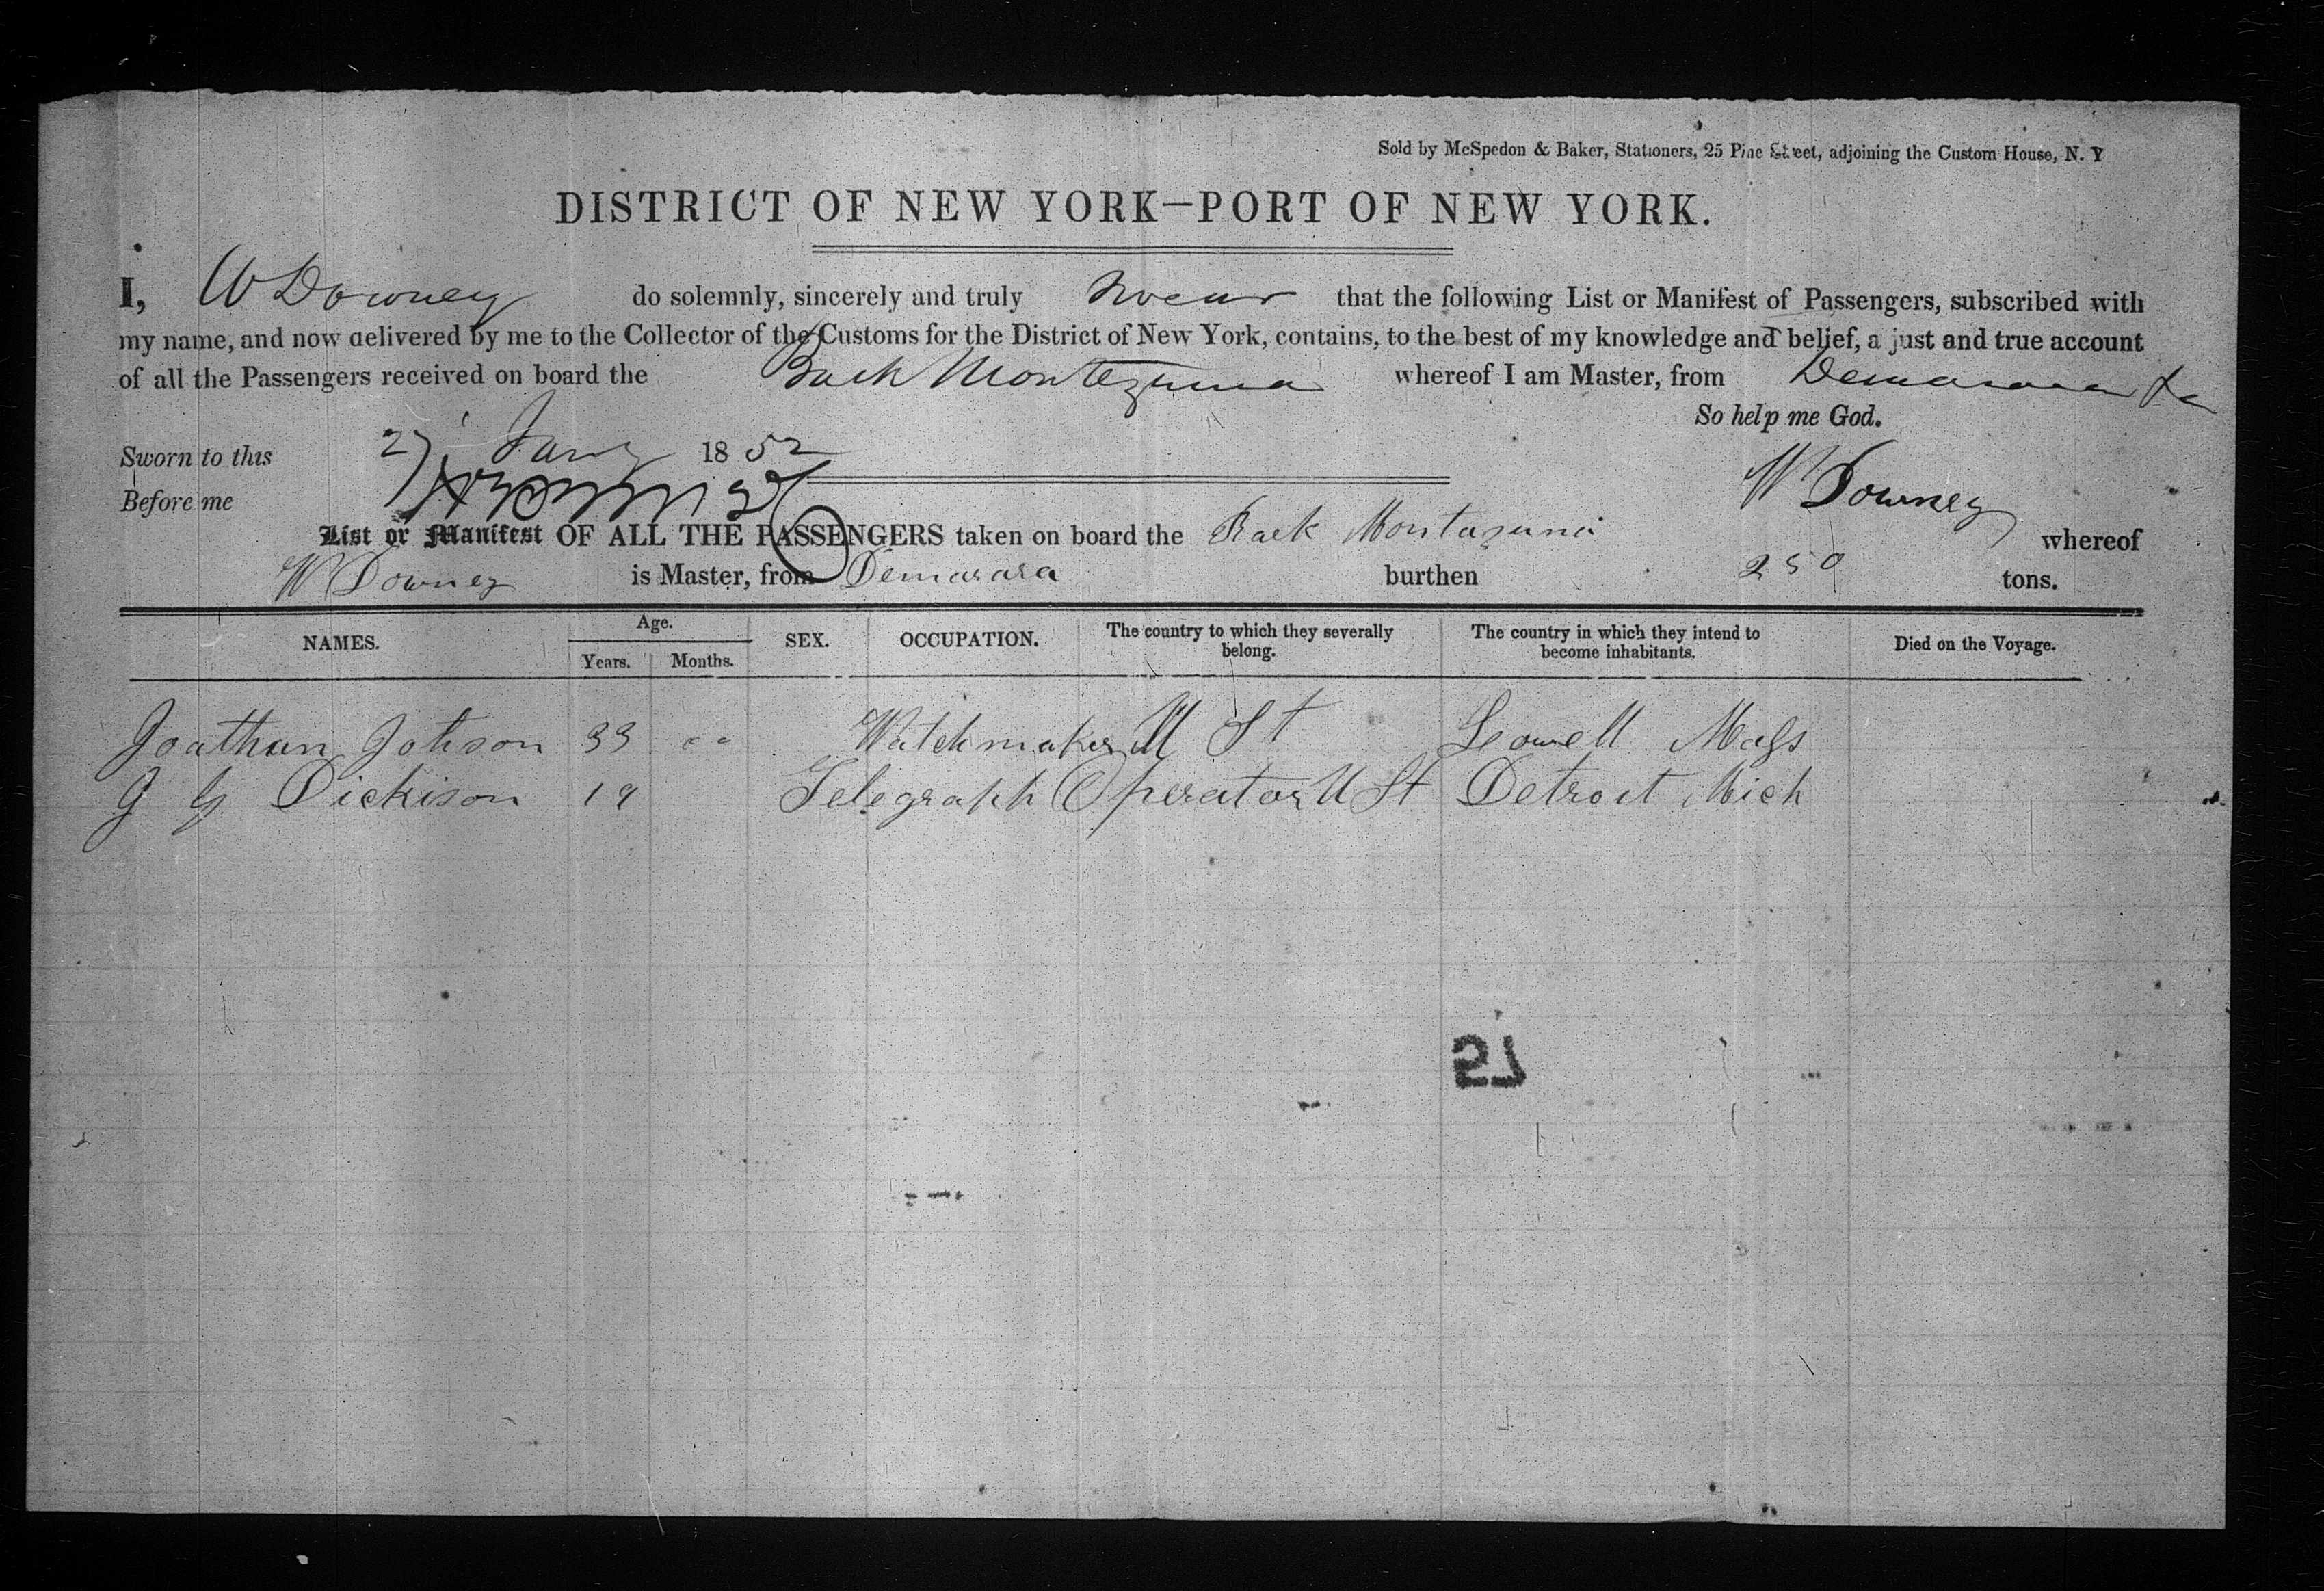 Sold by McSpedon & Baker, Stationers, 25 Pine Street, adjoining the Custom House, N. Y
DISTRICT OF NEW YORK—PORT OF NEW YORK.
I, W Downey do solemnly, sincerely and truly swear that the following List or Manifest of Passengers, subscribed with
my name, and now delivered by me to the Collector of the Customs for the District of New York, contains, to the best of my knowledge and belief, a just and true account
of all the Passengers received on board the Bark Montezuma whereof I am Master, from Demarara
So help me God.
Sworn to this 27 Jany 1852
Before me
W Downey
List or Manifest OF ALL THE PASSENGERS taken on board the Bark Montazuma whereof
W Downey is Master, from Demarara burthen 250 tons.
NAMES. Age. Years. Months. SEX. OCCUPATION. The country to which they severally belong. The country in which they intend to become inhabitants. Died on the Voyage.
Joathan Johson 33 Watchmaker U St Leowell Mass
J G Dickison 19 Telegraph Operator U St Detroit Mich
57